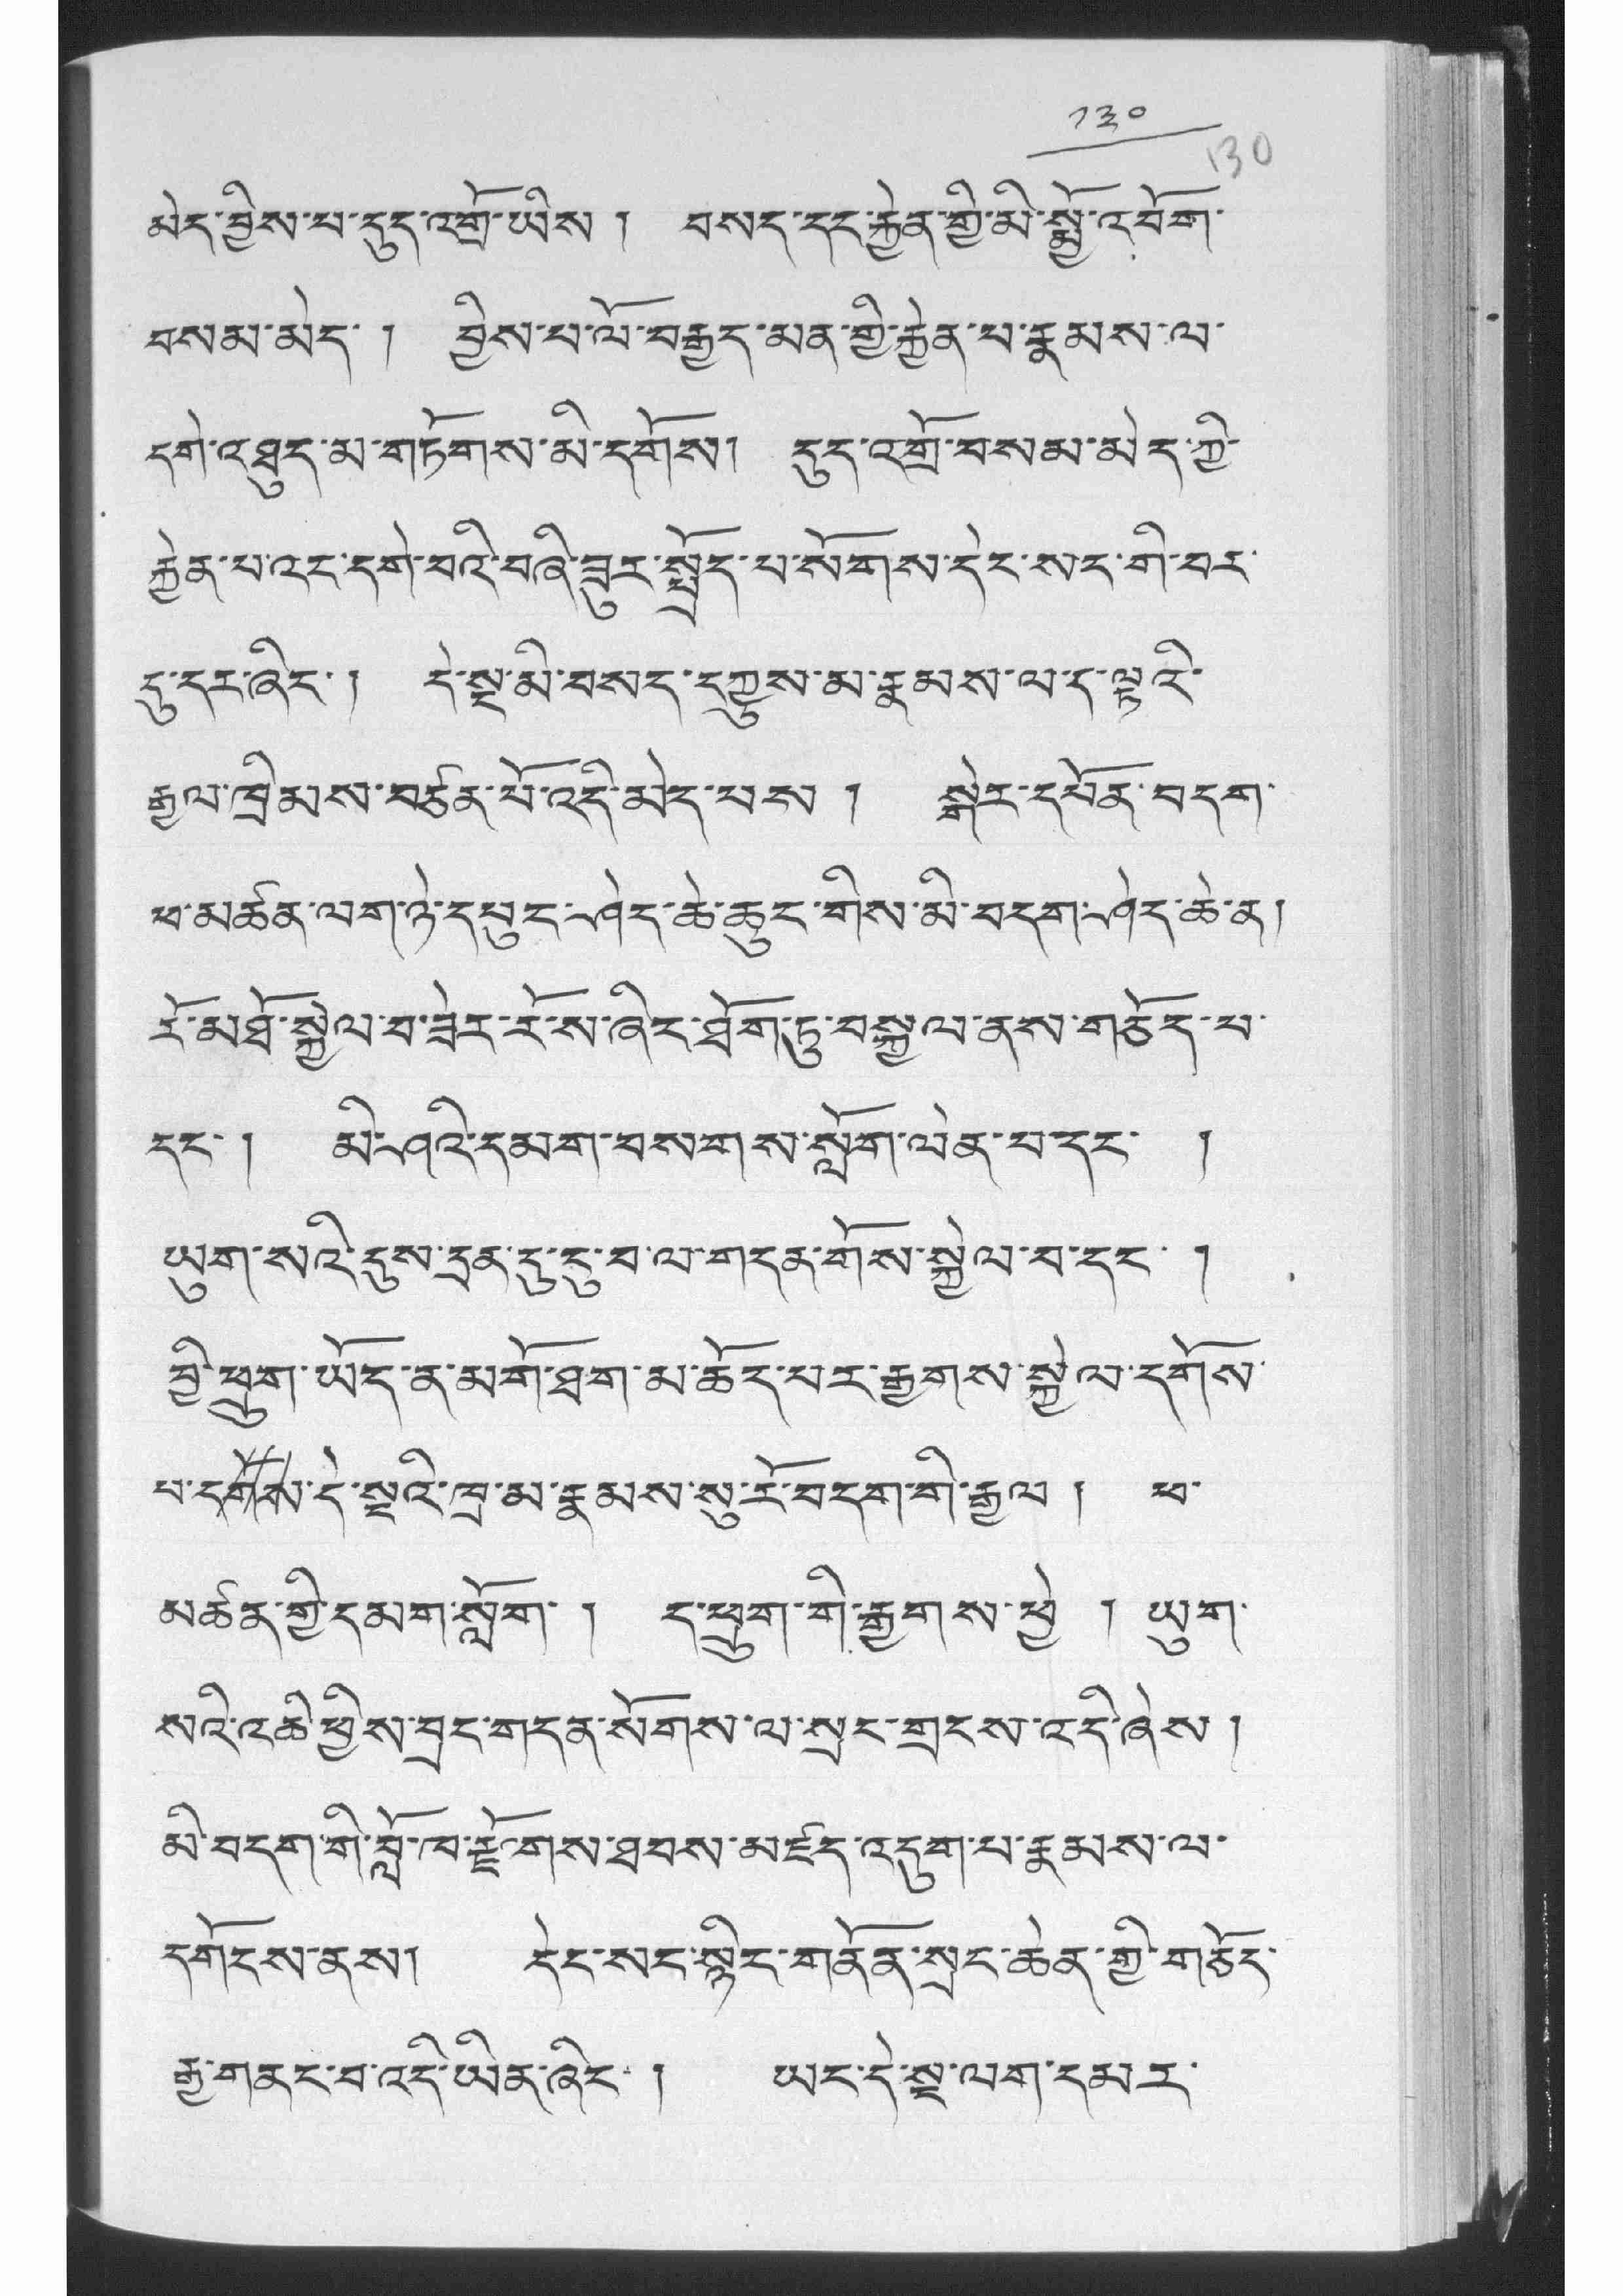 ༡༣༠
130
མེད་བྱིས་པ་དུད་འགྲོ་ཡིས། བསད་དང་རྐྱེན་གྱི་མི་སྨྱོ་འབོག་
བསམ་མེད་། བྱིས་པ་ལོ་བརྒྱད་མན་གྱི་རྐྱེན་པ་རྣམས་ལ་
དགེ་འཐུད་མ་གཏོགས་མི་དགོས། དུད་འགྲོ་བསམ་མེད་ཀྱི་
རྐྱེན་པ་འང་དགེ་བའི་བཞི་ཟུར་སྤྲོད་པ་སོགས་དེང་སང་གི་བར་
དུ་དར་ཞིང་། དེ་སྔ་མི་བསད་དཀྱུས་མ་རྣམས་ལ་ད་ལྟའི་
རྒྱལ་ཁྲིམས་བཙན་པོ་འདི་མེད་པས། སྒེར་དཔོན་བདག་
ཕ་མཚན་ལག་ཉེ་དཔུང་ཤེད་ཆེ་ཆུང་གིས་མི་བདག་ཤེད་ཆེ་ན།
རོ་མཐོ་སྐྱེལ་བ་ཟེར་རོ་ས་ཞིང་ཐོག་ཏུ་བསྐྱལ་ནས་གཅོད་པ་
དང་། མི་ཤའི་དམག་བསགས་སློག་ལེན་པ་དང་ །
ཡུག་སའི་དུས་དྲན་དུ་དུ་བ་ལ་གདན་གོས་སྐྱེལ་བ་དང་ །
བྱི་ཕྲུག་ཡོད་ན་མགོ་ཐག་མ་ཆོད་པར་རྒྱགས་སྐྱེལ་དགོས་
པ་དགོས་དེ་སྔའི་ཁྲ་མ་རྣམས་སུ་རོ་བདག་གི་རྒྱལ། ཕ་
མཚན་གྱི་དམག་སློག་། ད་ཕྲུག་གི་རྒྱགས་ཕྱེ། ཡུག་
སའི་འཆི་ཕྱིས་བྲང་གདན་སོགས་ལ་སྲང་གྲངས་འདི་ཞེས།
མི་བདག་གི་བློ་ཁ་རྫོགས་ཐབས་མཛད་འདུག་པ་རྣམས་ལ་
དགོངས་ནས། དེང་སང་སྙིང་གནོན་སྲང་ཆེན་གྱི་གཅོད་
རྒྱ་གནང་བ་འདི་ཡིན་ཞིང་། ཡང་དེ་སྔ་ལག་དམར་